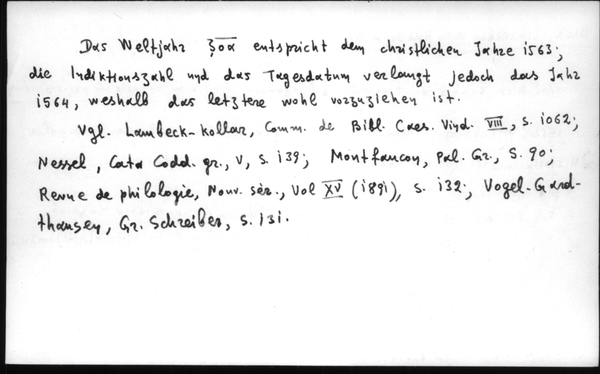 Das Weltjahr ͵ζοα entspricht dem christlichen Jahre 1563;
die Indiktionszahl und das Tagesdatum verlangt jedoch das Jahr
1564, weshalb das letztere wohl vorzuziehen ist.
Vgl. Lambeck-Kollar, Comm. de Bibl. Caes. Vind. VIII, S. 1062;
Nessel, Cata Codd. gr., V, S. 139; Montfaucon, Pal. Gr., S. 90;
Revue de philologie, Nouv. sér., Vol XV (1891), S. 132; Vogel-Gard-
thausen, Gr. Schreiber, S. 131.